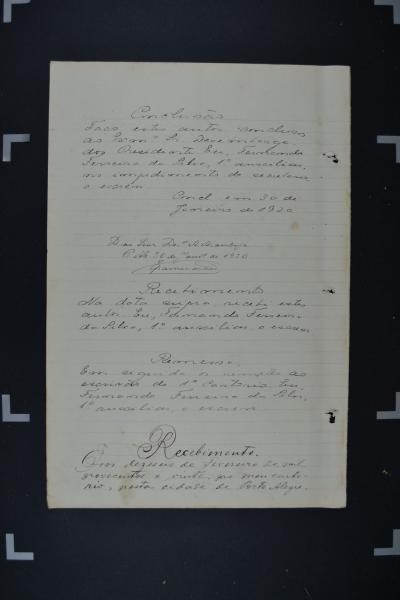 Conclusão
Faço estes autos conclusos
ao Exmº Sr. Desembargo
dor Presidente. Eu, Fernando
Ferreira da Silva, 1º auxiliar,
no impedimento do secretario
o escrevi.
Concl. em 30 de
Janeiro de 1920
30 de Janº de 1920
Recebimento
Na data supra recebi estes
autos. Eu, Fernando Ferreira
da Silva, 1º auxiliar, o escrevi
Remessa.
Em seguida os remetto ao
escrivão do 1º Cartorio. Eu,
Fernando Ferreira da Silva,
1º auxiliar, o escrevi
Recebimento.
Em dezeseis de Fevereiro de mil
novecentos e vinte, em meu carto-
rio, nesta cidade de Porto Alegre,